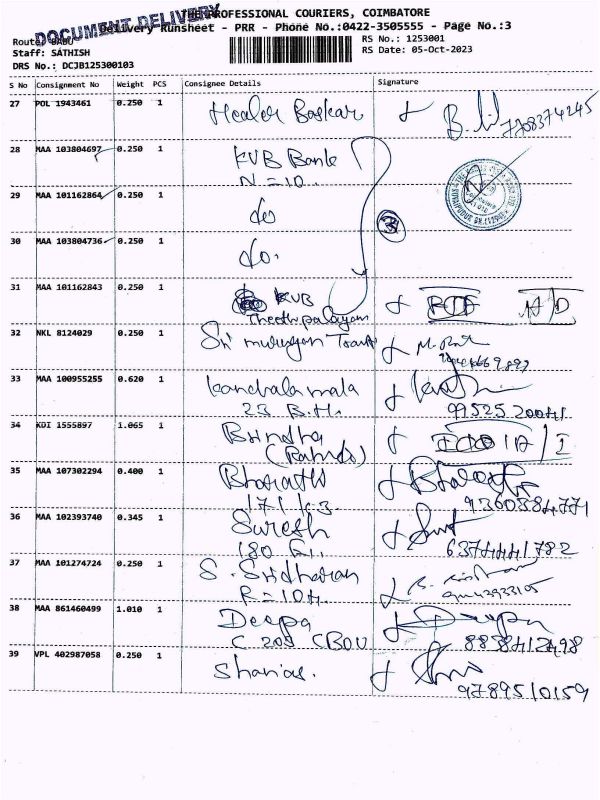 DOCUMENT DELIVERY
THE PROFESSIONAL COURIERS, COIMBATORE
Delivery Runsheet - PRR - Phone No.:0422-3505555 - Page No.:3
Route: BABU
RS No.: 1253001
Staff: SATHISH
RS Date: 05-Oct-2023
DRS No.: DCJB125300103
S No Consignment No Weight PCS Consignee Details Signature
27 POL 1943461 0.250 1 Healer Baskar 7708374245
28 MAA 103804697 0.250 1 KVB Bank
N = 10
29 MAA 101162864 0.250 1 do
30 MAA 103804736 0.250 1 do.
31 MAA 101162843 0.250 1 KVB
Theethipalayam
32 NKL 8124029 0.250 1 Sri murugan
33 MAA 100955255 0.620 1 Kanchala mala
23 B.H. 99525 20041
34 KDI 1555897 1.065 1 Brindha
35 MAA 107302294 0.400 1 Bharathi
171 9360384771
36 MAA 102393740 0.345 1 Suresh
180 6374441782
37 MAA 101274724 0.250 1 S. Sridharan
R = 104
38 MAA 861460499 1.010 1 Deepa Deepa
C 205 8838412498
39 VPL 402987058 0.250 1
9789510159